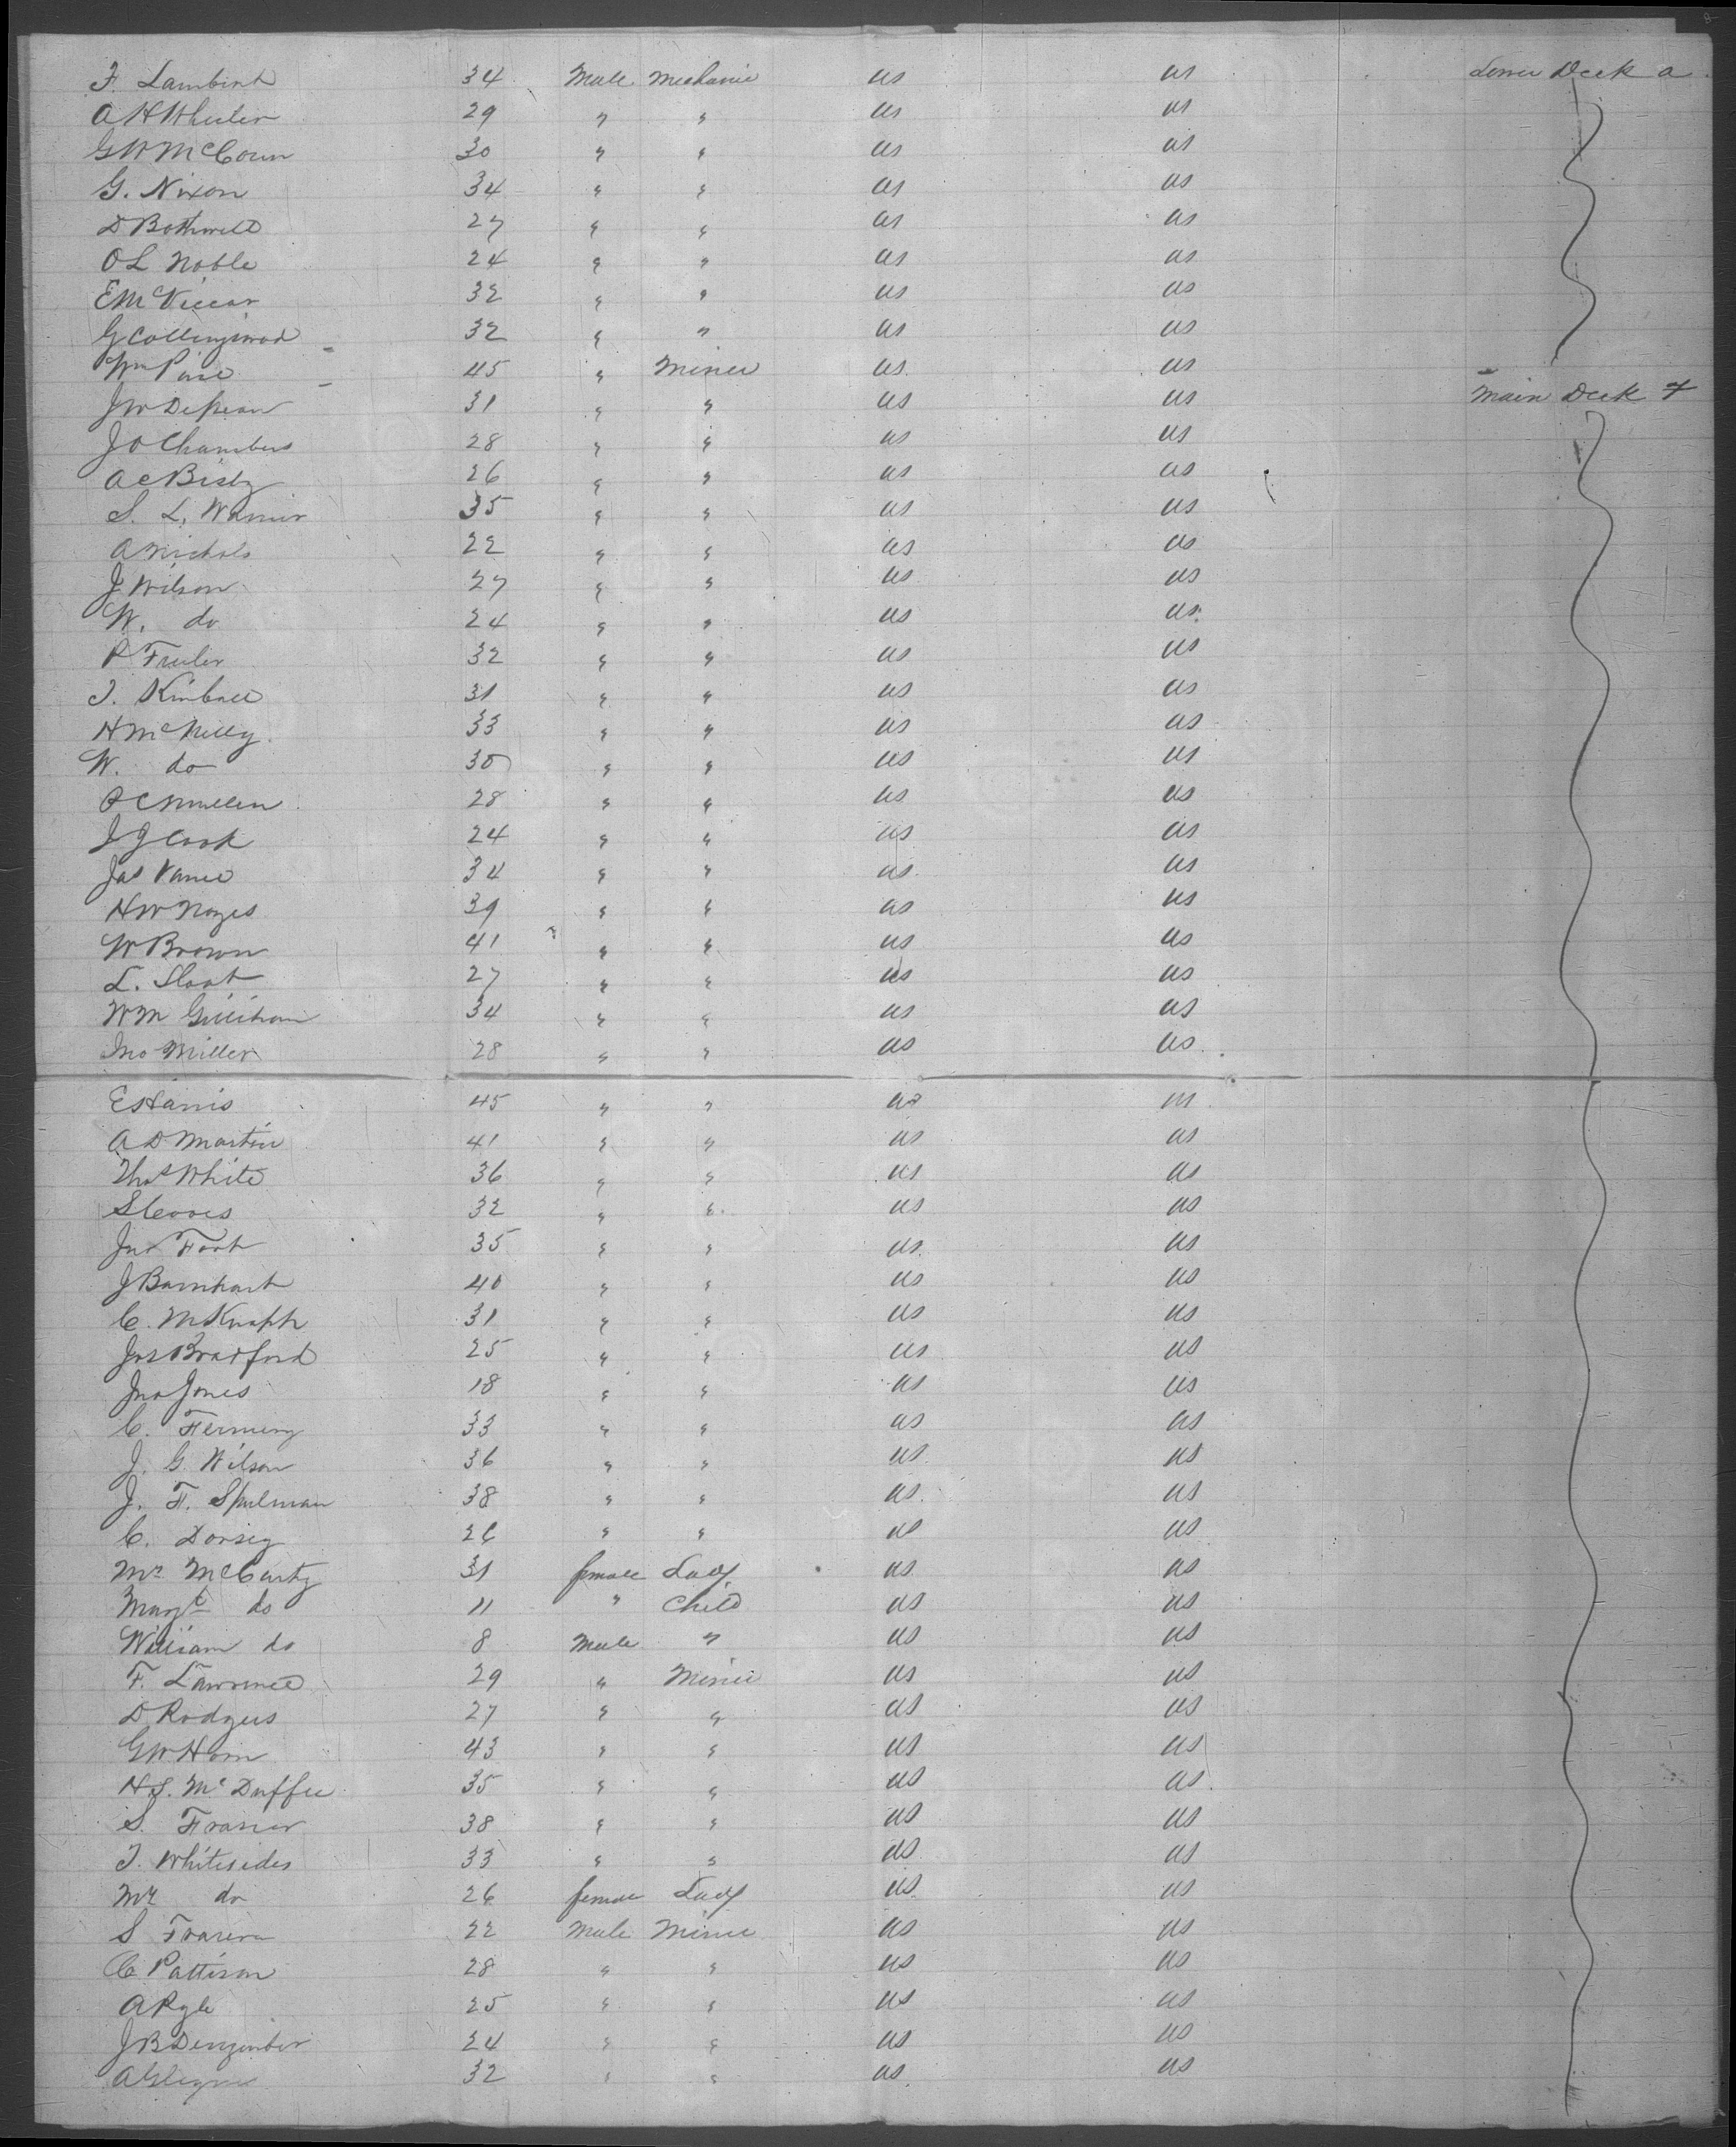 F. Lambert 34 Male Mechanic US US Lower Deck a
A H Wheeler 29 " " US US
G W McCoun 30 " " US US
G. Nixon 34 " " US US
D Bothwell 27 " " US US
O L Noble 24 " " US US
E McViccar 32 " " US US
G Collingwood 32 " " US US
Wm Pine 45 " Miner US US Main Deck F
J W 31 " " US US
J O Chambers 28 " " US US
A C Bisby 26 " " US US
S. L. Warner 35 " " US US
A Nichols 22 " " US US
J Wilson 27 " " US US
W. do 24 " " US US
P 32 " " US US
T. Kimball 31 " " US US
H McNelly 33 " " US US
W. do 30 " " US US
28 " " US US
J J Cook 24 " " US US
Jas Vance 34 " " US US
H W Noyes 39 " " US US
W Brown 41 " " US US
L. Sloat 27 " " US US
Wm Gilliham 34 " " US US
Jno Miller 28 " " US US
E Harris 45 " " US US
A D Martin 41 " " US US
Thos White 36 " " US US
S Coves 32 " " US US
Jno Foot 35 " " US US
J Barnhart 40 " " US US
C. M Knapp 31 " " US US
Jos Bradford 25 " " US US
Jno Jones 18 " " US US
C. 33 " " US US
J. G. Wilson 36 " " US US
J. F. Spilman 38 " " US US
C. Dorsey 26 " " US US
Mrs McCarty 31 female Lady US US
Margt do 11 " Child US US
William do 8 Male " US US
F. Lawrence 29 " Miner US US
D Rodgers 27 " " US US
G W Horn 43 " " US US
H S. McDuffee 35 " " US US
S. Frasier 38 " " US US
T. Whitesides 33 " " US US
Mrs do 26 female Lady US US
S 22 Male Miner US US
C Pattison 28 " " US US
A Ryle 25 " " US US
J B 24 " " US US
A 32 " " US US